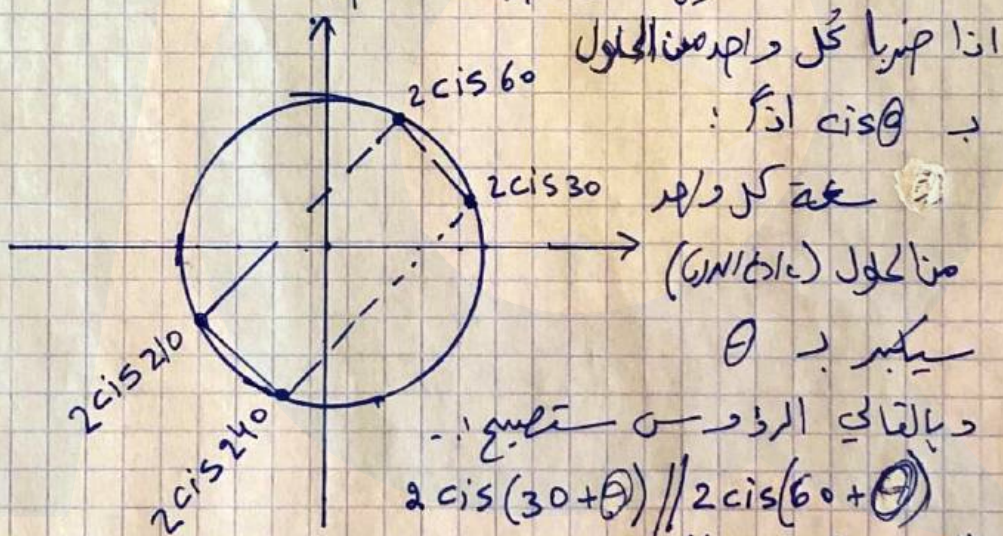 اذا ضربنا كُل واحد من الحلول
بـ cisθ اذاً :
سعة كل واحد
من الحلول
سيكبر بـ θ
وبالتالي الرؤوس ستصبح :..
2cis(30+θ) // 2cis(60+θ)
2cis60
2cis30
2cis210
2cis240